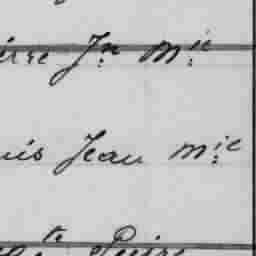 ierre Jn Mie
uis Jean Mie